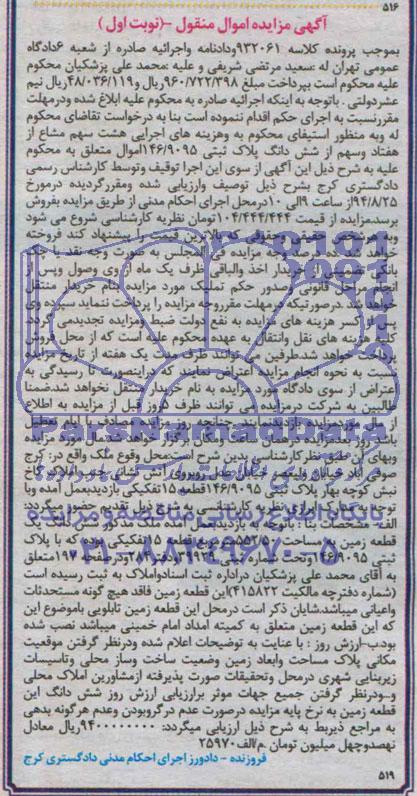 ۵۱۶
آگهی مزایده اموال منقول -(نوبت اول )
بموجب پرونده کلاسه ۹۳۲۰۶۱ودادنامه واجرائیه صادره از شعبه ۶دادگاه
عمومی تهران له :سعید مرتضی شریفی و علیه :محمد علی پزشکیان محکوم
علیه محکوم است بپرداخت مبلغ ۹۶۰/۷۲۲/۳۹۸ریال و۴۸/۰۳۶/۱۱۹ریال نیم
عشردولتی . باتوجه به اینکه اجرائیه صادره به محکوم علیه ابلاغ شده ودرمهلت
مقررنسبت به اجرای حکم اقدام ننموده است بنا به درخواست تقاضای محکوم
له وبه منظور استیفای محکوم به وهزینه های اجرایی هشت سهم مشاع از
هفتاد وسهم از شش دانگ پلاک ثبتی ۱۴۶/۹۰۹۵اموال متعلق به محکوم
علیه به شرح ذیل این آگهی از سوی این اجرا توقیف وتوسط کارشناس رسمی
دادگستری کرج بشرح ذیل توصیف وارزیابی شده ومقررگردیده درمورخ
۹۴/۸/۲۵از ساعت ۹الی ۱۰درمحل اجرای احکام مدنی از طریق مزایده بفروش
برسدمزایده از قیمت ۱۰۴/۴۴۴/۴۴۴تومان نظریه کارشناسی شروع می شود
وبه هرشخص حقیقی وحقوقی که بالاترین قیمت را پیشنهاد کند فروخته
خواهد شد ده درصد وجه مزایده فی المجلس به صورت وجه نقد
بانکی تضمینی از خریدار اخذ والباقی ظرف یک ماه از وی وصول وپس از
انجام مراحل قانونی وصدور حکم تملیک مورد مزایده بنام خریدار منتقل
خواهد شد درصورتیکه درمهلت مقرروجه مزایده را پرداخت ننماید سپرده وی
پس از کسر هزینه های مزایده به نفع دولت ضبط ومزایده تجدیدمی گردد
کلیه هزینه های نقل وانتقال به عهده محکوم علیه است که از محل فروش
پرداخت خواهد شد.طرفین می توانند ظرف مدت یک هفته از تاریخ مزایده
نسبت به نحوه انجام مزایده اعتراض نمایند که دراینصورت تا رسیدگی به
اعتراض از سوی دادگاه مورد مزایده به نام خریدار منتقل نخواهد شد.ضمنا
طالبین به شرکت درمزایده می توانند ظرف روز قبل از مزایده به اطلاع
از مال موردمزایده بازدیدنمایند.چنانچه روز مزایده مصادف با ایام تعطیل
باشد روز بعدمزایده درهمان ساعت ومکان برگزار خواهد شد.مال مورد مزایده
وبهای آن طبق نظرکارشناسی بدین شرح است:محل وقوع ملک واقع در: کرج
صوفی آباد خیابان ولیعصر خیابان روبروی آتش نشانی جنب املاک کاخ
نبش کوچه بهار پلاک ثبتی ۱۴۶/۹۰۹۵قطعه ۱۵تفکیکی بازدیدبعمل آمده وبا
توجه به برای نظریه کارشناسی به شرح ذیل تقدیم حضور میگردد:
الف -مشخصات بنا : باتوجه به بازدیدبعمل آمده ملک مذکور یک
قطعه زمین به مساحت ۵۵۲/۵۰ قطعه ۱۵تفکیکی بوده که با پلاک
ثبتی ۱۴۶/۹۰۹۵وتحت شماره ثبتی ۳۹۹۲۴ودفتر۲۸۴ودرصفحه ۱۹۷متعلق
به آقای محمد علی پزشکیان دراداره ثبت اسنادواملاک به ثبت رسیده است
(شماره دفترچه مالکیت ۴۱۵۸۲۲)این قطعه زمین فاقد هیچ گونه مستحدثات
واعیانی میباشد.شایان ذکر است درمحل این قطعه زمین تابلویی باموضوع این
که این قطعه زمین متعلق به کمیته امداد امام خمینی میباشد نصب شده
بود.ب-ارزش روز : با عنایت به توضیحات اعلام شده ودرنظر گرفتن موقعیت
مکانی پلاک مساحت وابعاد زمین وضعیت ساخت وساز محلی وتاسیسات
زیربنایی شهری درمحل وتحقیقات صورت پذیرفته ازمشاورین املاک محلی
و-ودرنظر گرفتن جمیع جهات موثر برارزیابی ارزش روز شش دانگ این
قطعه زمین به نرخ پایه مزایده درصورت عدم درگروبودن وعدم هرگونه بدهی
به مراجع ذیربط به شرح ذیل ارزیابی میگردد: ۹۴۰۰۰۰۰۰۰۰ریال معادل
نهصدوچهل میلیون تومان .م/الف۲۵۹۷۰
فروزنده - دادورز اجرای احکام مدنی دادگستری کرج
۵۱۹